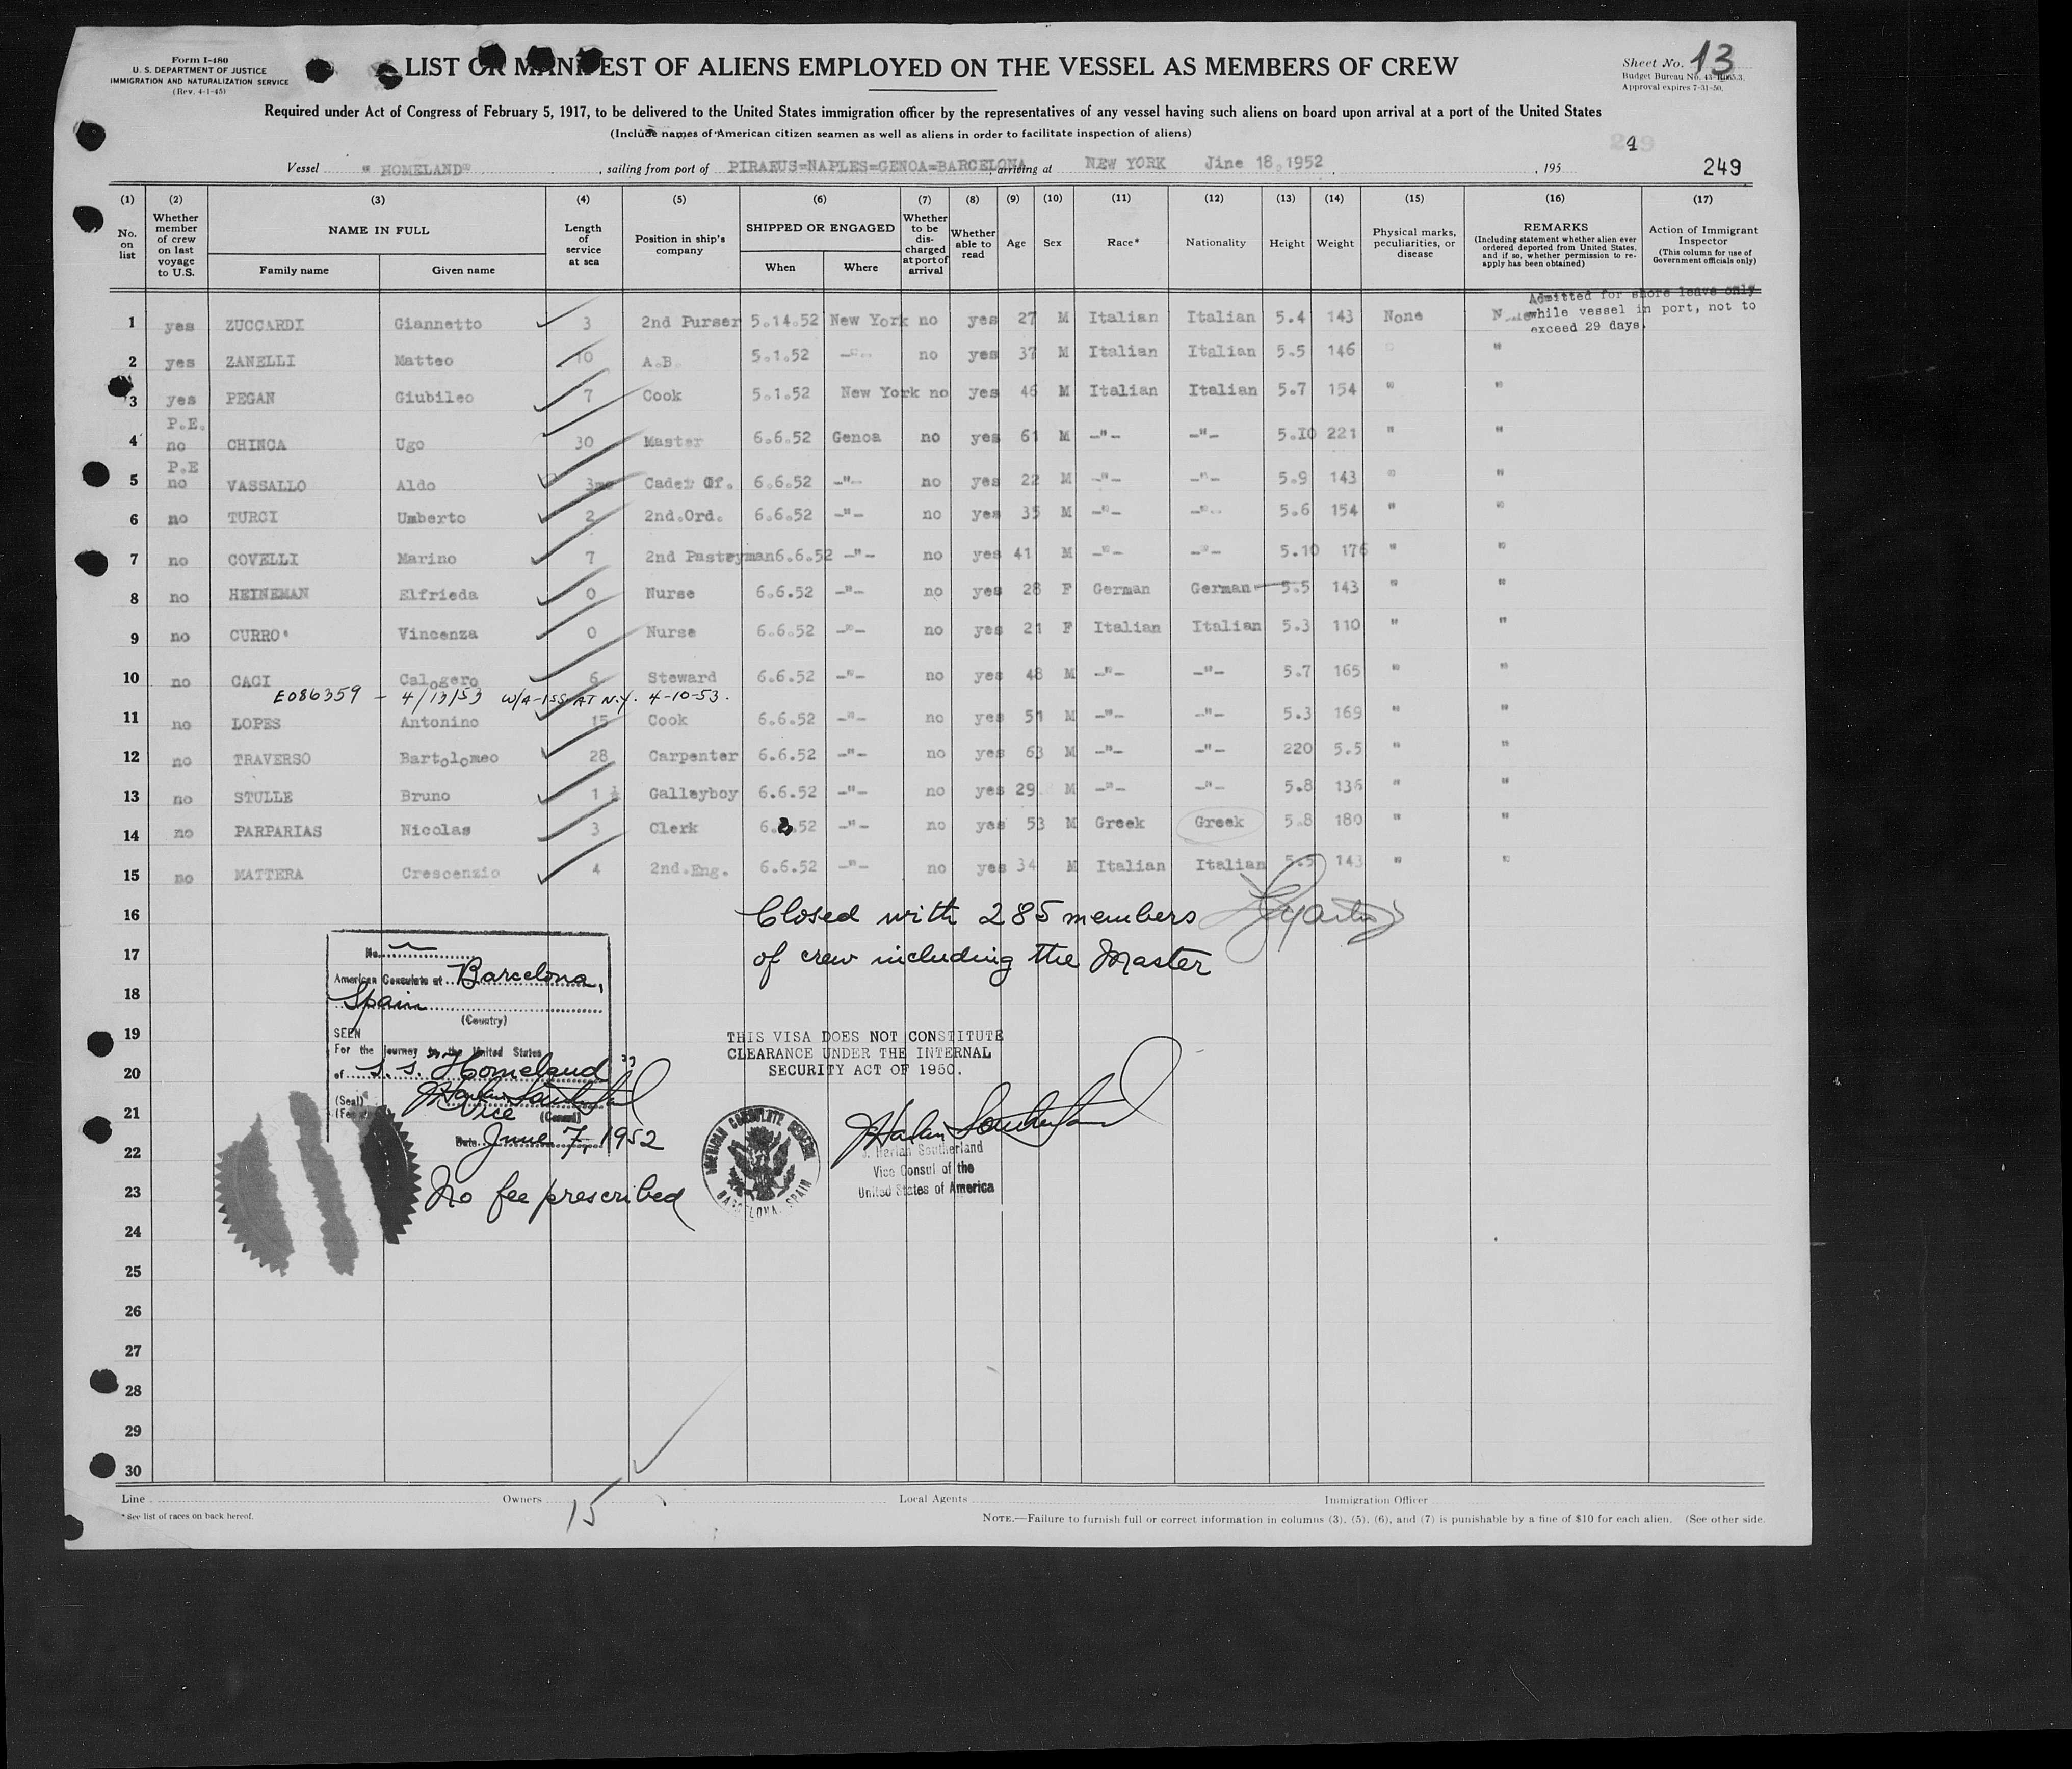 Form I-480
U. S. DEPARTMENT OF JUSTICE
IMMIGRATION AND NATURALIZATION SERVICE
(Rev. 4-1-45)
LIST OR MANIFEST OF ALIENS EMPLOYED ON THE VESSEL AS MEMBERS OF CREW
Sheet No. 13
Budget Bureau No. 43-R065.3.
Approval expires 7-31-50.
Required under Act of Congress of February 5, 1917, to be delivered to the United States immigration officer by the representatives of any vessel having such aliens on board upon arrival at a port of the United States
(Include names of American citizen seamen as well as aliens in order to facilitate inspection of aliens)
Vessel " HOMELAND" , sailing from port of PIRAEUS=NAPLES=GENOA=BARCELONA arriving at NEW YORK Jine 18,1952 , 195 249
(1) (2) (3) (4) (5) (6) (7) (8) (9) (10) (11) (12) (13) (14) (15) (16) (17)
No. on list
Whether member of crew on last voyage to U.S.
NAME IN FULL
Family name
Given name
Length of service at sea
Position in ship's company
SHIPPED OR ENGAGED
When
Where
Whether to be discharged at port of arrival
Whether able to read
Age
Sex
Race*
Nationality
Height
Weight
Physical marks, peculiarities, or disease
REMARKS
(Including statement whether alien ever ordered deported from United States, and if so, whether permission to reapply has been obtained)
Action of Immigrant Inspector
(This column for use of Government officials only)
Admitted for shore leave only
while vessel in port, not to
exceed 29 days.
1 yes ZUCCARDI Giannetto 3 2nd Purser 5.14.52 New York no yes 27 M Italian Italian 5.4 143 None
2 yes ZANELLI Matteo 10 A.B. 5.1.52 -"- no yes 37 M Italian Italian 5.5 146 " "
3 yes PEGAN Giubileo 7 Cook 5.1.52 New York no yes 46 M Italian Italian 5.7 154 " "
P.E.
4 no CHINCA Ugo 30 Master 6.6.52 Genoa no yes 61 M -"- -"- 5.10 221 " "
P.E
5 no VASSALLO Aldo 3mo Cadet Of. 6.6.52 -"- no yes 22 M -"- -"- 5.9 143 " "
6 no TURCI Umberto 2 2nd.Ord. 6.6.52 -"- no yes 35 M -"- -"- 5.6 154 " "
7 no COVELLI Marino 7 2nd Pastryman 6.6.52 -"- no yes 41 M -"- -"- 5.10 176 " "
8 no HEINEMAN Elfrieda 0 Nurse 6.6.52 -"- no yes 28 F German German 5.5 143 " "
9 no CURRO' Vincenza 0 Nurse 6.6.52 -"- no yes 21 F Italian Italian 5.3 110 " "
10 no CACI Calogero 6 Steward 6.6.52 -"- no yes 48 M -"- -"- 5.7 165 " "
E086359 - 4/13/53 W/A-ISS AT N.Y. 4-10-53.
11 no LOPES Antonino 15 Cook 6.6.52 -"- no yes 51 M -"- -"- 5.3 169 " "
12 no TRAVERSO Bartolomeo 28 Carpenter 6.6.52 -"- no yes 63 M -"- -"- 220 5.5 " "
13 no STULLE Bruno 1 ½ Galleyboy 6.6.52 -"- no yes 29 M -"- -"- 5.8 136 " "
14 no PARPARIAS Nicolas 3 Clerk 6.3.52 -"- no yes 53 M Greek Greek 5.8 180 " "
15 no MATTERA Crescenzio 4 2nd.Eng. 6.6.52 -"- no yes 34 M Italian Italian 5.5 143 " "
16
Closed with 285 members
17
of crew including the Master
18
19
20
21
22
23
24
25
26
27
28
29
30
No.
American Consulate at Barcelona,
Spain
(Country)
SEEN
For the journey to the United States
of S.S. "Homeland"
(Seal)
J Harlan Southerland
Vice (Consul)
Date June 7, 1952
No fee prescribed
THIS VISA DOES NOT CONSTITUTE
CLEARANCE UNDER THE INTERNAL
SECURITY ACT OF 1950.
AMERICAN CONSULATE GENERAL
BARCELONA, SPAIN
J Harlan Southerland
J. Harlan Southerland
Vice Consul of the
United States of America
15
Line Owners Local Agents Immigration Officer
* See list of races on back hereof.
NOTE.—Failure to furnish full or correct information in columns (3), (5), (6), and (7) is punishable by a fine of $10 for each alien. (See other side.